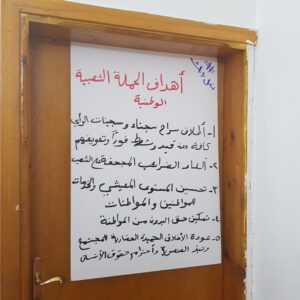 أهداف الحملة الشعبية
الوطنية
١- أطلاق سراح سجناء وسجينات الرأي
كافة من قيد وشرط فوراً وتعويضهم
٢- الغاء الضرائب المجحفة على الشعب
٣- تحسين المستوى المعيشي والخدمات
للمواطنين والمواطنات
٤- تمكين حق البدون من المواطنة
٥- عودة الأخلاق الحميدة الحضارية للمجتمع
ونبذ العنصرية وأحترام حقوق الأنسان